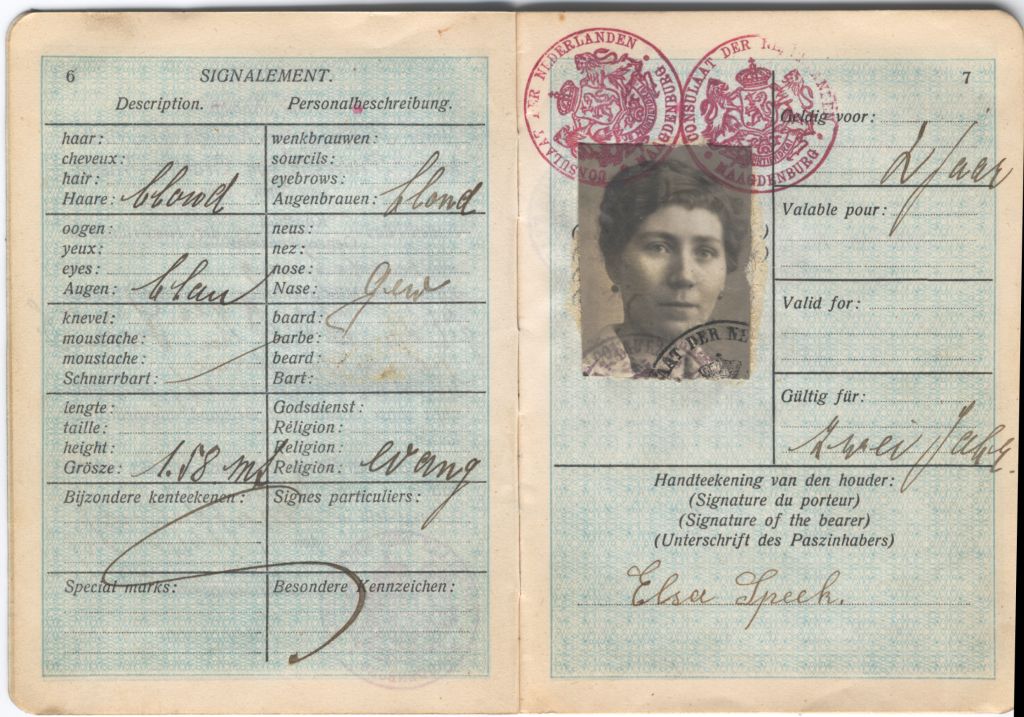 6
SIGNALEMENT.
Description. Personalbeschreibung.
haar:
cheveux:
hair:
Haare: blond
wenkbrauwen:
sourcils:
eyebrows:
Augenbrauen: blond
oogen:
yeux:
eyes:
Augen: blau
neus:
nez:
nose:
Nase: gew
knevel:
moustache:
moustache:
Schnurrbart:
baard:
barbe:
beard:
Bart:
lengte:
taille:
height:
Grösze: 1.58
Godsdienst:
Réligion:
Religion:
Religion: evang
Bijzondere kenteekenen:
Signes particuliers:
Special marks:
Besondere Kennzeichen:
7
CONSULAAT DER NEDERLANDEN
MAAGDENBURG
CONSULAAT DER
MAAGDENBURG
Geldig voor:
2 Jaar
Valable pour:
Valid for:
Gültig für:
zwei Jahre.
AAT DER NE
Handteekening van den houder:
(Signature du porteur)
(Signature of the bearer)
(Unterschrift des Paszinhabers)
Elsa Speek.